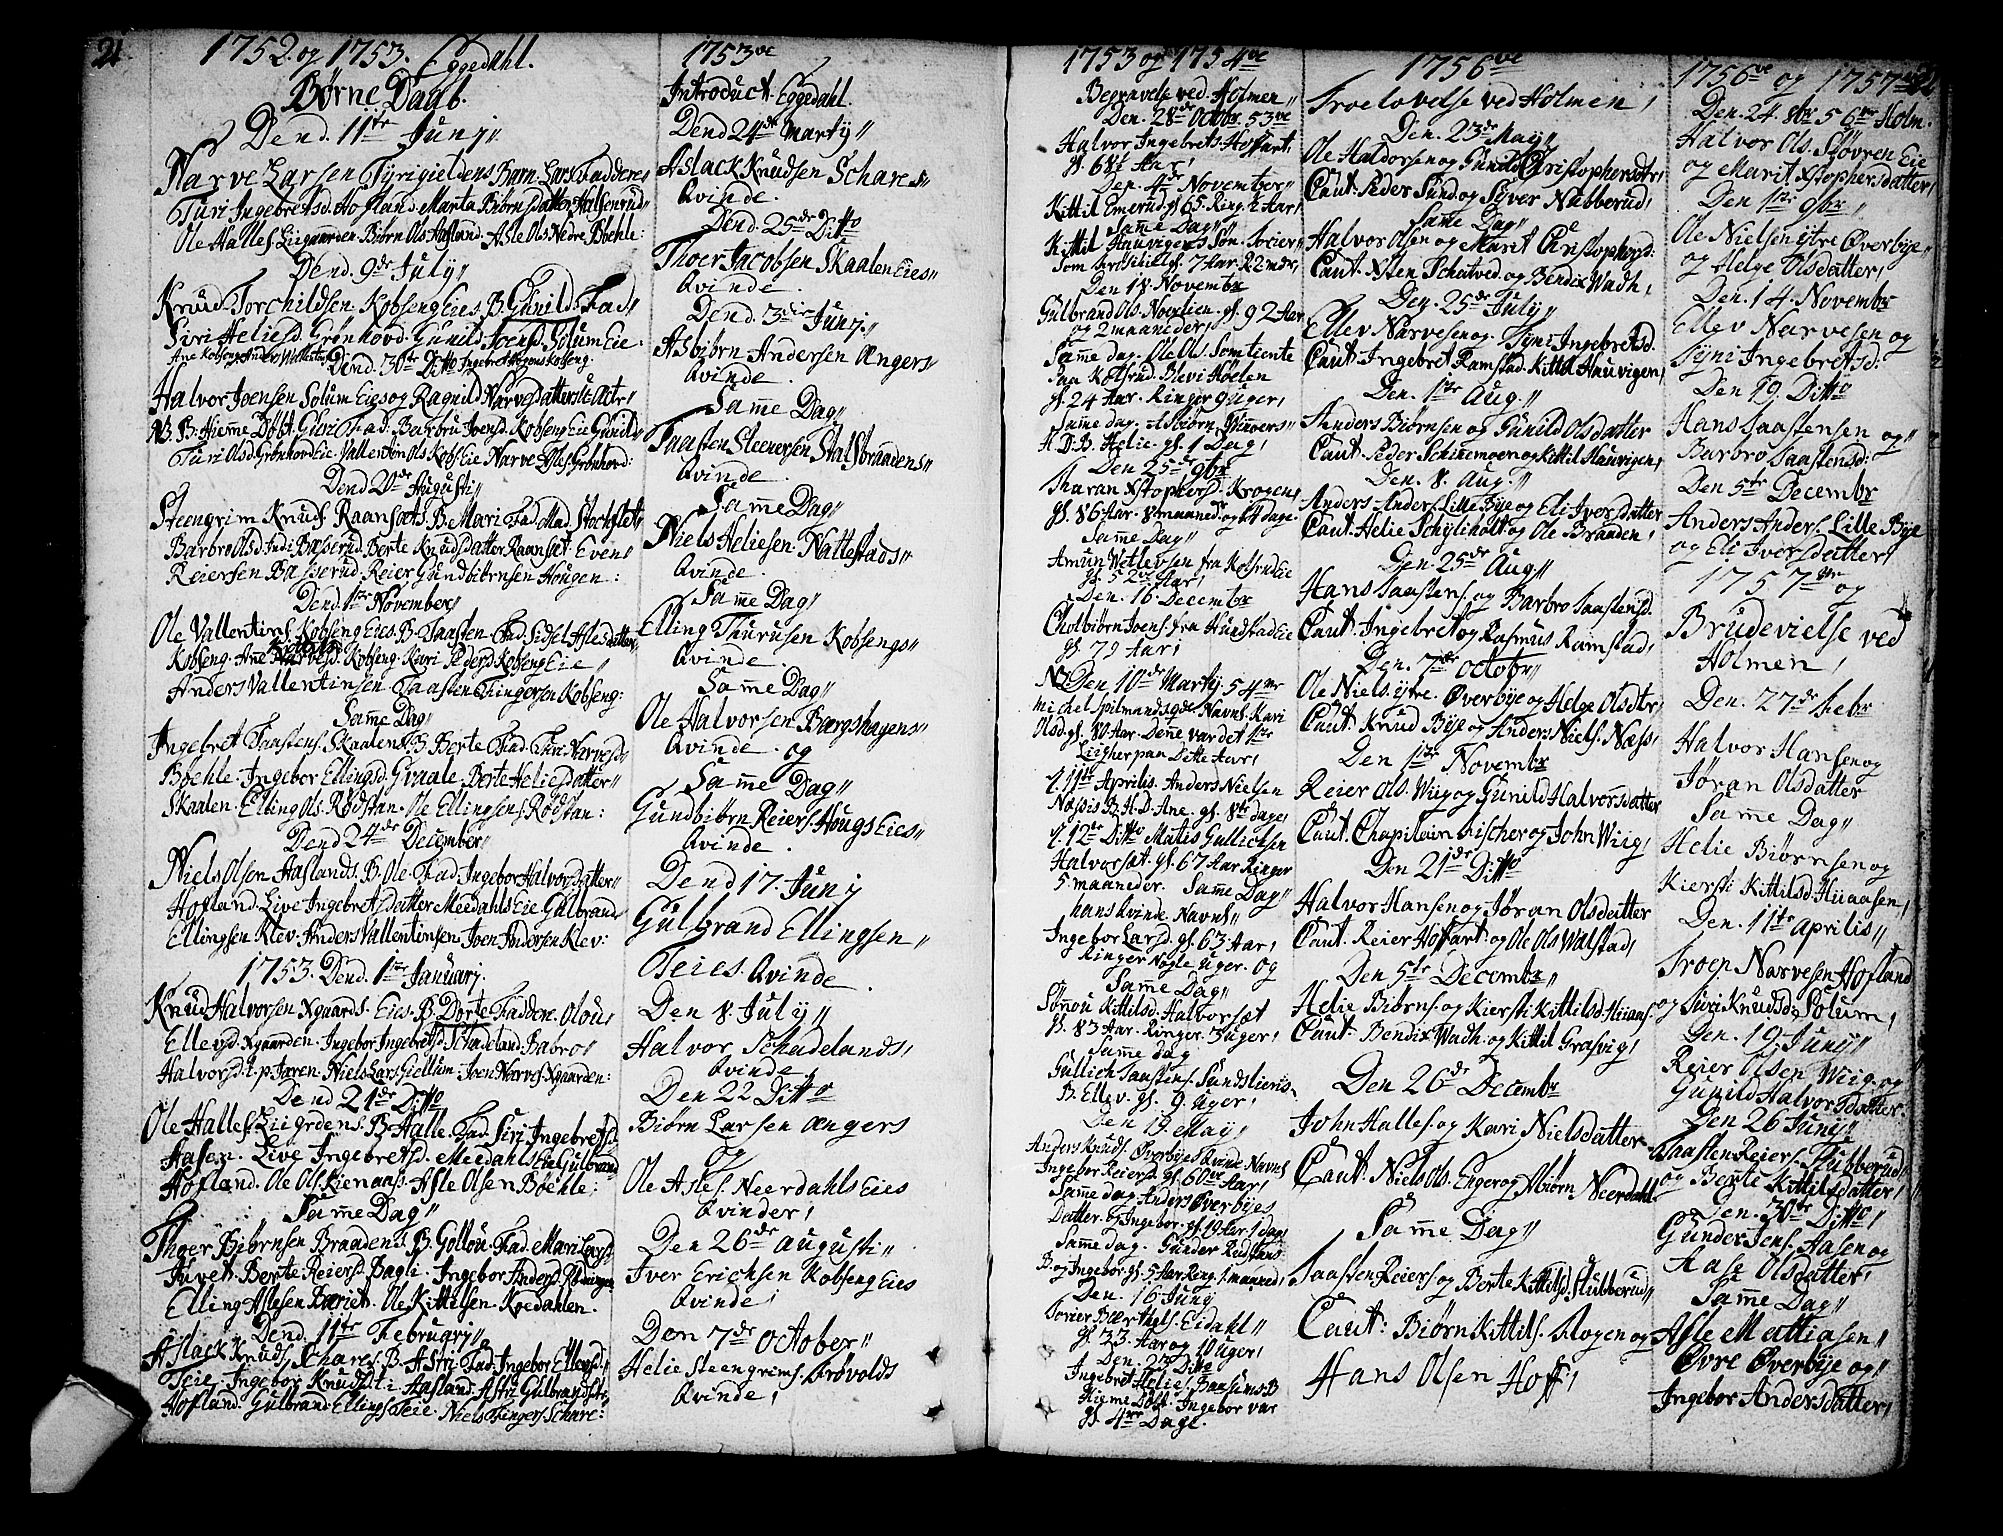 21
1752. og 1753. Eggedahl.
Børne Daab.
Dend. 11te Junj
Narve Larsen Tyrigieldens Barn. Lars. Fadderne
Turi Ingebretsd. Hofland. Marta Biørnsdatter Halsenrud
Ole Halles. Liigaarden. Biørn Ols. Hafland. Asle Ols. Nedre Bøehle:
Dend. 9de July
Knud Torchildsen. Kobseng Eies. B. Gunild. Fad
Siri Heliesd. Grønhovd. Gunild Joensd. Solum Eie.
Dend. 30te Ditto
Halvor Joensen Solum Eies og Ragnild Narvesdatters
B. Hieme Døbt. Guri. Fad. Barbru Joensd. Kobseng Eie. Gunild
Turi Olsd. Grønhovd Eie. Vallentin Ols. Kobs. Eie. Narve Asles. Grønhovd:
Dend 20de Augusti
Steengrim Knuds. Raansæts. B. Mari. Fad.
Barbro Olsd. Berte Knudsdatter Raansæt. Even
Reiersen Basserud. Reier Gundbiørnsen Hougen:
Dend. 1te November
Ole Vallentins. Kobseng Eies. B. Taasten. Fad. Sidsel Aslesdatter
Kobseng. Ane Narvesd. Kobseng. Kari Pedersd. Kobseng Eie
Anders Vallentinsen. Taasten Thingersen Kobseng:
Same Dag
Ingebret Taastens. Skaalens. B. Berte. Fad. Turi Narvesd.
Bøehle. Ingebor Ellingsd. Gvaale. Berte Heliesdatter
Skaalen. Elling Ols. Rødstan. Ole Ellingsens. Rødstan:
Dend 24de December
Niels Olsen Haflands. B. Ole. Fad. Ingebor Halvorsdatter
Hofland. Live Ingebretsdatter Meedahls Eie. Gulbrand
Ellingsen Klev. Anders Vallentinsen. Joen Andersen Klev:
1753. Dend. 1te Januarj.
Knud Halvorsen Xgaards. Eies. B. Dorte. Faddere. Olou
Ellevsd. Xgaarden. Ingebor Ingebretsd. Schadeland. Babro
Halvorsd. Niels Lars. Giellum. Joen Narves. Xgaarden:
Dend 21de Ditto
Ole Halles. Liigrdens. B. Halle. Fad. Siri Ingebretsd.
Hasen. Live Ingebretsd. Meedahls Eie. Gulbrand
Hofland. Ole Ols. Kienaas. Asle Olsen Bøehle:
Same Dag
Thoer Biørnsen Braadens. B. Gollou. Fad. Mari Larsd.
Juvet. Berte Reiersd. Bagli. Ingebor Andersd.
Elling Aslesen Bæriet. Ole Kittilsen. Kvedahlen.
Dend. 11te Februarj
Aslack Knuds. Schares. B. Astri. Fad. Ingebor Ellevsd.
Teie. Ingebor Knudsd. i Hafland. Astri Gulbrandsd.
Hofland. Gulbrand Ellings. Teie. Niels Thingers. Schare:
1753ve
Introduct. Eggedahl.
Dend 24de Martij
Aslack Knudsen Schares
Qvinde.
Dend. 25de Ditto
Thoer Jacobsen Skaalen Eies
Qvinde.
Dend. 3die Junj.
Asbiørn Andersen Ængers
Qvinde.
Same Dag
Taasten Steenersen Stalsbraadens
Qvinde.
Same Dag
Niels Heliesen. Nattestads
Qvinde.
Same Dag
Elling Thurusen Kobsengs
Qvinde.
Same Dag
Ole Halvorsen Bærgshagens
Qvinde. og
Same Dag
Gundbiørn Reiers. Hougs Eies
Qvinde.
Dend 17. Junj
Gulbrand Ellingsen
Teies. Qvinde.
Den 8. July
Halvor Schadelands,
Qvinde.
Den 22 Ditto
Biørn Larsen Ængers
og
Ole Asles. Neerdahls Eies
Qvinder,
Den 26de Augusti
Iver Erichsen Kobseng Eies
Qvinde,
Den 7de October
Helie Steengrims. Brøvolds
Qvinde,
1753 og 1754ve
Begravelse ved Holmen
Den. 28de Octobr. 53ve
Halvor Ingebrets. Hoffart.
gl. 68½ Aar,
Den. 4de November
Kittil Emerud. gl. 65. Ring. 2 Aar,
Same Dag
Kittil Hauvigens Søn. Socier
gl. 7 Aar. R 2 mdr,
Den 18 Novembr
Gulbrand Ols. Novelien. gl. 92 Aar
og 2 maaneder,
Same dag. Ole Ols. Somtiente
paa Kolsrud. Blev i Hoelen
gl. 24 Aar. Ringer 9 uger,
Same dag.
H. D. B. Helie. gl. 1 Dag,
Den 25de 9br
Tharan Xstophers. Krogen,
gl. 86 Aar. 8 maaneder og 14 dage.
Same Dag
Amun Wetlevsen fra Kolsrud Eie
gl. 52 Aar,
Den. 16 Decembr
Cholbiørn Joens. fra Hundstad Eie
gl. 79 Aar,
NB. Den 10de Martij 54
Michel Spilmands qde Navnl. Kari
Olsd. gl. 80 Aar. Dene var det 1te
Liig her paa Ditte Aar,
d. 11te Aprilis. Anders Nielsen
Næssis B. H. D. Ane. gl. 8te dage,
d. 12te Ditto Matis Gullichsen
Halvorsæt. gl. 67 Aar Ringer
5 maaneder. Same Dag
hans Qvinde Navnl
Ingebor Larsd. gl. 63 Aar,
Ringer Nogle Uger. og
Same Dag
Sønou Kittilsd. Halvorsæt
gl. 83 Aar. Ringer. 3 uger,
Same dag
Gullich Taastens. Sundsliens.
B. Ellev. gl. 9. Uger,
Den 19 May
Anders Knuds. Øverbyes Qvinde Navnl
Ingebor Reiersd. gl. 60 Aar,
Same dag. Anders Øverbyes
Datter. Ingebor. gl. 19 Aar. 1 dag,
Same dag. Gunder Rustans
D. og Ingebor. gl. 5 Aar Ring. 1. maaned,
Den. 16 Junj
gl. 33. Aar og 10 Uger,
Den. 21de Ditto
Ingebret Helies. Baasums B
Hieme Døbt. Ingebor var
gl. 4re Dage.
1756ve
Troelovelse ved Holmen,
Den. 23de May
Ole Haldorsen og Gunild Christophersdtr,
Caut. Peder Sund og Syver Nabberud,
Same Dag
Halvor Olsen og Marit Christophersd:
Caut. Xsten Schatved. og Bendix Wadh,
Den. 25de July
Ellev Narvesen og. Tyni Ingebretsd.
Caut. Ingebret Ramstad. Kittil Hauvigen,
Den. 1te Aug.
Anders Biørnsen og Gunild Olsdatter
Caut. Peder Schinnemoen og Kittil Hauvigen,
Den. 8. Aug.
Anders Anders. Lille Bye og Eli Iversdatter
Caut. Helie Schyliholt og Ole Braaden,
Den 25de Aug
Hans Taastens. og Barbro Taastensd.
Caut. Ingebret og Rasmus Ramstad,
Den. 7de Octobr
Ole Niels. ytre. Øverbye og Helge Olsdtr,
Caut. Knud Bye og Anders Niels. Næss,
Den 1te Novembr
Reier Ols. Wiig og Gunild Halvorsdatter
Caut. Chapilain Fischer og John Wiig,
Den 21de Ditto
Halvor Hansen og Jøran Olsdatter
Caut. Reier Hoffart. og Ole Ols. Walstad,
Den 5te Decembr
Helie Biørns. og Kiersti Kittilsd. Hiiaas.
Caut. Bendix Wadh. og Kittil Grasvig,
Den 26de Decembr
John Halles. og Kari Nielsdatter
Caut. Niels Ols. Enger og Abiørn Neerdahl
Same Dag
Taasten Reiers. og Berte Kittilsd. Stubberud
Caut: Biørn Kittils. Rogen og
Hans Olsen Hoff,
1756ve og 1757
Den. 24. 8br 56 Holm.
Halvor Ols. Støvren Eie
og Marit Xstophersdatter,
Den 1te 9br,
Ole Nielsen ytre Øverbye
og Helge Olsdatter,
Den. 14. Novembr
Ellev Narvesen og
Tyni Ingebretsd:
Den 19. Ditto
Hans Taastensen og
Barbro Taastensd:
Den 5te Decembr
Anders Anders. Lille Bye
og Eli Iversdatter,
1757 og
Brudevielse ved
Holmen,
Den. 27de Febr
Halvor Hansen og
Jøran Olsdatter
Same Dag
Helie Biørnsen og
Kiersti Kittilsd. Hiiaasen,
Den. 11te Aprilis
Troep Narvesen Hofland
og Turi Knudsd. Solum,
Den. 19. Junij
Reier Olsen Wiig. og
Gunild Halvorsdatter.
Den 26 Junij
Taasten Reiers. Stubberud,
og Berte Kittilsdatter,
Den. 30te Ditto
Gunder Jens. Aasen og
Aase Olsdatter,
Same Dag
Asle Mattiasen
Øvre Øverbye og
Ingebor Andersdatter,